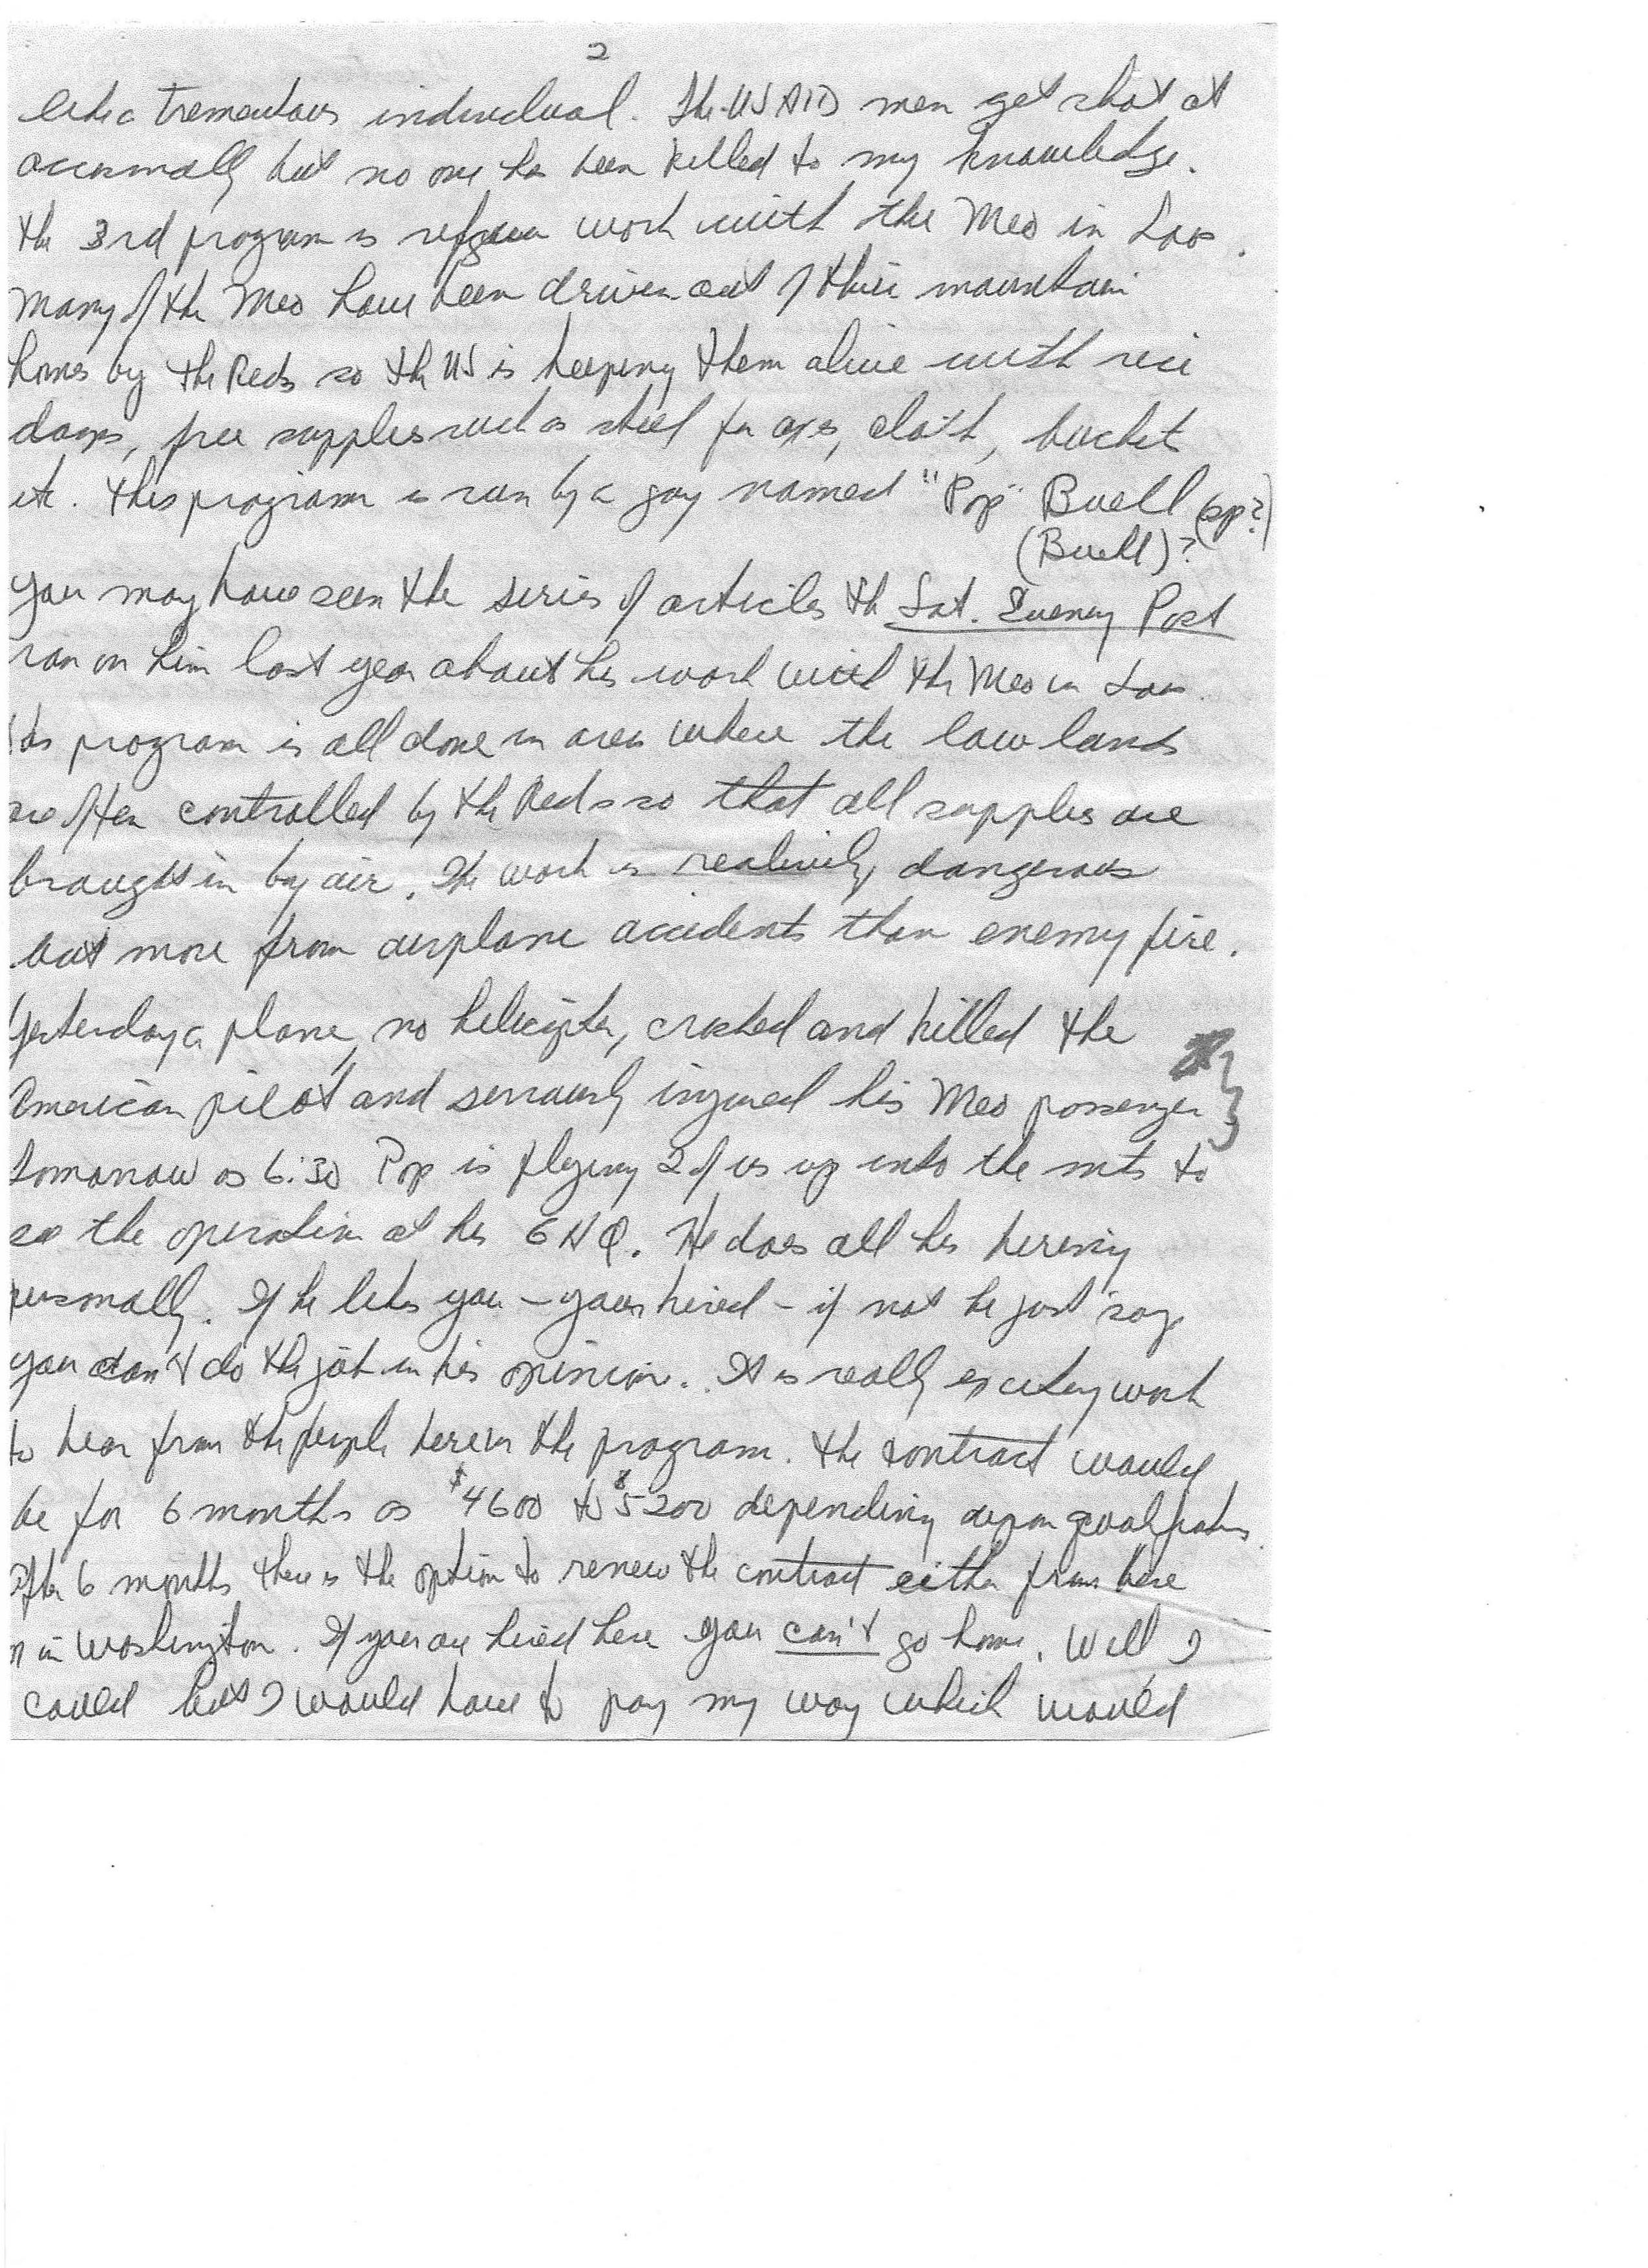 2
like a tremendous individual. The US AID men get shot at
occasionally but no one has been killed to my knowledge.
the 3rd program is refugee work with the Meo in Laos.
Many of the Meo have been driven out of their mountain
homes by the Reds so the US is keeping them alive with rice
drops, free supplies such as steel for axes, cloth, buckets
etc. This program is run by a guy named "Pop" Buell (sp?)
(Buell)?
you may have seen the series of articles the Sat. Evening Post
ran on him last year about his work with the Meo in Laos.
His program is all done in areas where the low lands
are often controlled by the Reds so that all supplies are
brought in by air. The work is realively dangerous
but more from airplane accidents than enemy fire.
Yesterday a plane, no helicopter, crashed and killed the
American pilot and seriously injured his Meo passenger
Tomorrow as 6:30 Pop is flying 2 of us up into the mts to
see the operation at his HQ. He does all his hireing
personally. If he likes you - your hired - if not he just says
you can't do the job in his opinion. It is really exciting work
to hear from the people here in the program. The contract would
be for 6 months as $4600 to $5200 depending upon qualifications.
After 6 months there is the option to renew the contract either from here
or in Washington. If you are hired here you can't go home. Well I
could but I would have to pay my way which would